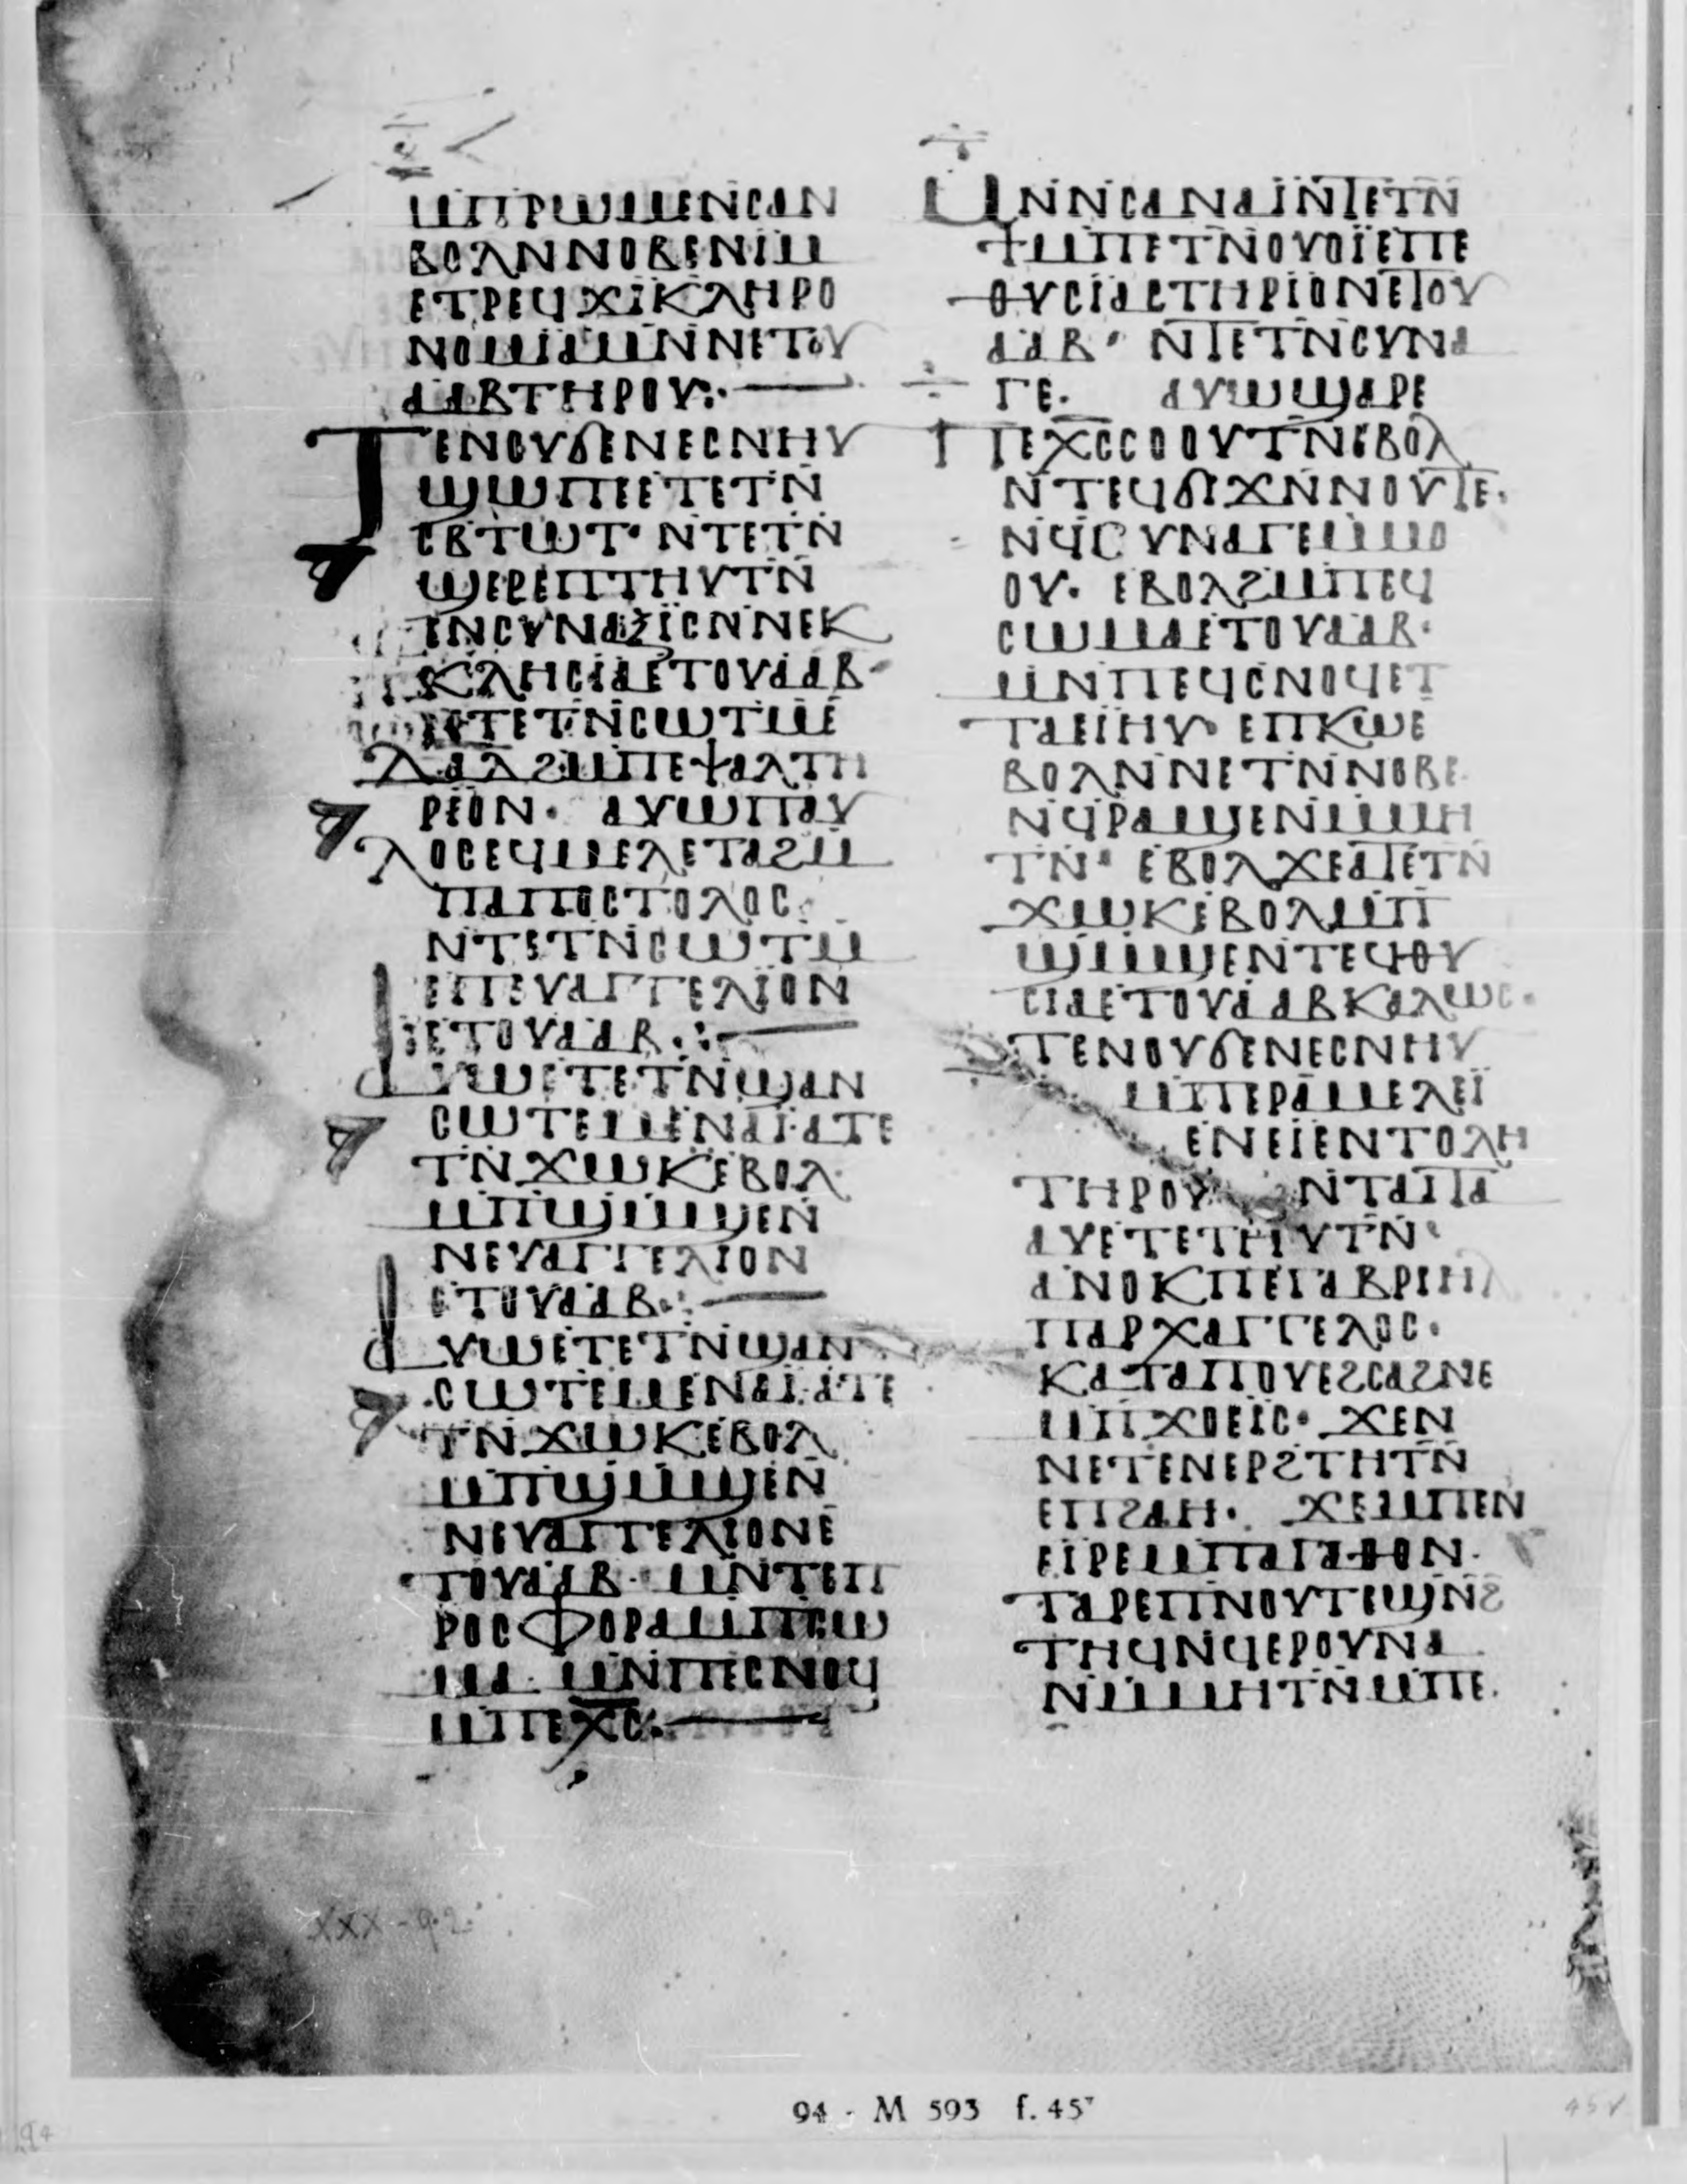 ⲙⲡⲣⲱⲙⲉⲛⲥⲁⲛ
ⲃⲟⲗⲛⲛⲟⲃⲉⲛⲓⲙ
ⲉⲧⲣⲉϥϫⲓⲕⲗⲏⲣⲟ
ⲛⲟⲙⲓⲁⲙⲛ̄ⲛⲉⲧⲟⲩ
ⲁⲁⲃⲧⲏⲣⲟⲩ:·—
ⲧⲉⲛⲟⲩϭⲉⲛⲉⲥⲛⲏⲩ
ϣⲱⲡⲉⲉⲧⲉⲧⲛ̄
ⲥⲃⲧⲱⲧ· ⲛⲧⲉⲧⲛ̄
ϣⲉⲣⲉⲡⲧⲏⲩⲧⲛ̄
ⲉⲛⲥⲩⲛⲁⲝⲓⲥⲛ̄ⲛⲉⲕ
ⲕⲗⲏⲥⲓⲁⲉⲧⲟⲩⲁⲁⲃ·
ⲛⲧⲉⲧⲛ̄ⲥⲱⲧⲙⲉ
ⲇⲁⲇϩⲙⲡⲉⲯⲁⲗⲧⲏ
ⲣⲓⲟⲛ· ⲁⲩⲱⲡⲁⲩ
ⲗⲟⲥⲉϥⲙⲉⲗⲉⲧⲁϩⲙ
ⲡⲁⲡⲟⲥⲧⲟⲗⲟⲥ·
ⲛⲧⲉⲧⲛ̄ⲥⲱⲧⲙ̄
ⲉⲡⲉⲩⲁⲅⲅⲉⲗⲓⲟⲛ
ⲉⲧⲟⲩⲁⲁⲃ·:—
ⲁⲩⲱⲉⲧⲉⲧⲛ̄ϣⲁⲛ
ⲥⲱⲧⲉⲙⲉⲛⲁⲓ·ⲁⲧⲉ
ⲧⲛ̄ϫⲱⲕⲉⲃⲟⲗ·
ⲙⲡϣⲙϣⲉⲛ̄
ⲛⲉⲩⲁⲅⲅⲉⲗⲓⲟⲛ
ⲉⲧⲟⲩⲁⲁⲃ·:—
ⲁⲩⲱⲉⲧⲉⲧⲛ̄ϣⲁⲛ
ⲥⲱⲧⲉⲙⲉⲛⲁⲓ·ⲁⲧⲉ
ⲧⲛ̄ϫⲱⲕⲉⲃⲟⲗ
ⲙⲡϣⲙϣⲉⲛ̄
ⲛⲉⲩⲁⲅⲅⲉⲗⲓⲟⲛⲉ
ⲧⲟⲩⲁⲁⲃ· ⲙⲛ̄ⲧⲉⲡ
ⲣⲟⲥⲫⲟⲣⲁⲙⲡⲥⲱ
ⲙⲁ· ⲙⲛ̄ⲡⲉⲥⲛⲟϥ
ⲙⲡⲉⲭ̅ⲥ̅:·—
ⲙⲛ̄ⲛ̄ⲥⲁⲛⲁⲓ̈ⲛ̄ⲧⲉⲧⲛ̄
ϯⲙⲡⲉⲧⲛ̄ⲟⲩⲟⲓ̈ⲉⲡⲉ
ⲑⲩⲥⲓⲁⲥⲧⲏⲣⲓⲟⲛⲉⲧⲟⲩ
ⲁⲁⲃ· ⲛ̄ⲧⲉⲧⲛ̄ⲥⲩⲛⲁ
ⲅⲉ· ⲁⲩⲱϣⲁⲣⲉ
ⲡⲉⲭ̅ⲥ̅ⲥⲟⲟⲩⲧⲛ̄ⲉⲃⲟⲗ
ⲛ̄ⲧⲉϥϭⲓϫⲛ̄ⲛⲟⲩⲧⲉ·
ⲛϥ̄ⲥⲩⲛⲁⲅⲉⲙⲙⲟ
ⲟⲩ· ⲉⲃⲟⲗϩⲙⲡⲉϥ
ⲥⲱⲙⲁⲉⲧⲟⲩⲁⲁⲃ·
ⲙⲛ̄ⲡⲉϥⲥⲛⲟϥⲉⲧ
ⲧⲁⲉⲓⲏⲩ· ⲉⲡⲕⲱⲉ
ⲃⲟⲗⲛ̄ⲛⲉⲧⲛ̄ⲛⲟⲃⲉ
ⲛϥ̄ⲣⲁϣⲉⲛⲙⲙⲏ
ⲧⲛ̄· ⲉⲃⲟⲗϫⲉⲁⲧⲉⲧⲛ̄
ϫⲱⲕⲉⲃⲟⲗⲙⲡ
ϣⲙϣⲉⲛⲧⲉϥⲑⲩ
ⲥⲓⲁⲉⲧⲟⲩⲁⲁⲃⲕⲁⲗⲱⲥ·
ⲧⲉⲛⲟⲩϭⲉⲛⲉⲥⲛⲏⲩ
ⲙⲡⲉⲣⲁⲙⲉⲗⲉⲓ̈
ⲉⲛⲉⲓⲉⲛⲧⲟⲗⲏ
ⲧⲏⲣⲟⲩ ⲛ̄ⲧⲁⲓⲧⲁ
ⲁⲩⲉⲧⲉⲧⲏⲩⲧⲛ̄·
ⲁⲛⲟⲕⲡⲉⲅⲁⲃⲣⲓⲏⲗ
ⲡⲁⲣⲭⲁⲅⲅⲉⲗⲟⲥ·
ⲕⲁⲧⲁⲡⲟⲩⲉϩⲥⲁϩⲛⲉ
ⲙⲡϫⲟⲉⲓⲥ· ϫⲉⲛ
ⲛⲉⲧⲉⲛⲉⲣϩⲧⲏⲧⲛ̄
ⲉⲡϩⲁⲏ· ϫⲉⲙⲡⲉⲛ
ⲉⲓⲣⲉⲙⲡⲁⲅⲁⲑⲟⲛ·
ⲧⲁⲣⲉⲡⲛⲟⲩⲧⲉϣⲛ̄ϩ
ⲧⲏϥⲛϥ̄ⲉⲣⲟⲩⲛⲁ
ⲛⲙⲙⲏⲧⲛ̄ⲙⲡⲉ·
94 - M 593 f. 45ᵛ